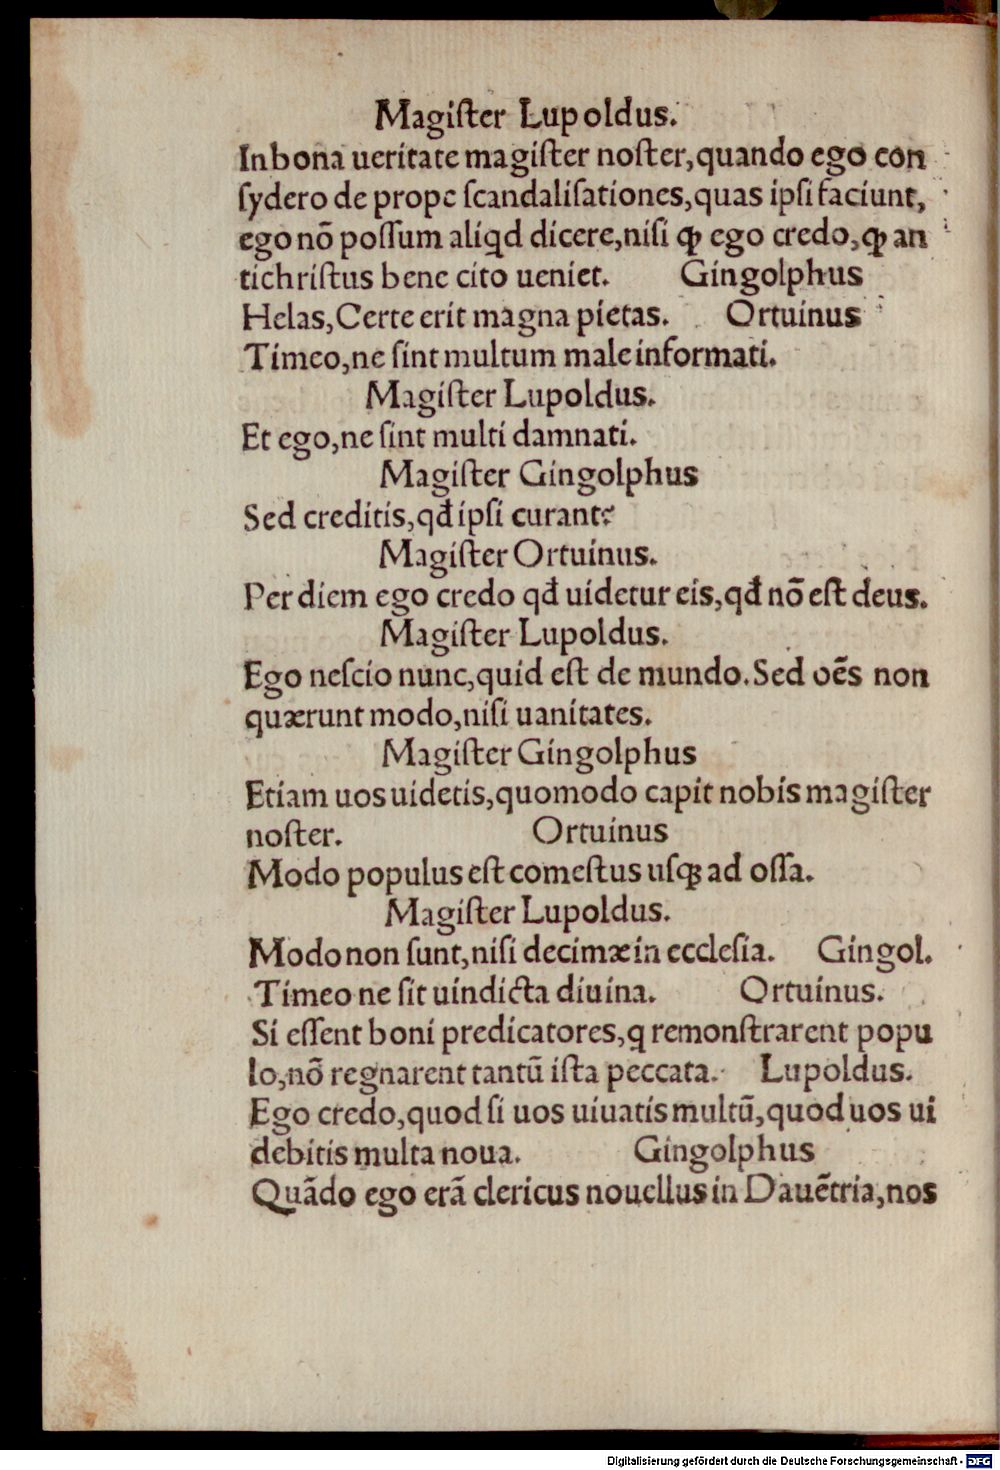 Magiſter Lupoldus.
In bona ueritate magiſter noſter, quando ego con
ſydero de prope ſcandaliſationes, quas ipſi faciunt,
ego nõ poſſum aliqd dicere, niſi ꝙ ego credo, ꝙ an
tichriſtus bene cito ueniet. Gingolphus
Helas, Certe erit magna pietas. Ortuinus
Timeo, ne ſint multum male informati.
Magiſter Lupoldus.
Et ego, ne ſint multi damnati.
Magiſter Gingolphus
Sed creditis, qđ ipſi curant?
Magiſter Ortuinus.
Per diem ego credo qđ uidetur eis, qđ nõ eſt deus.
Magiſter Lupoldus.
Ego neſcio nunc, quid eſt de mundo. Sed oẽs non
quærunt modo, niſi uanitates.
Magiſter Gingolphus
Etiam uos uidetis, quomodo capit nobis magiſter
noſter. Ortuinus
Modo populus eſt comeſtus uſqꝫ ad oſſa.
Magiſter Lupoldus.
Modo non ſunt, niſi decimæ in eccleſia. Gingol.
Timeo ne ſit uindicta diuina. Ortuinus.
Si eſſent boni predicatores, q remonſtrarent popu
lo, nõ regnarent tantũ iſta peccata. Lupoldus.
Ego credo, quod ſi uos uiuatis multũ, quod uos ui
debitis multa noua. Gingolphus
Quãdo ego erã clericus nouellus in Dauẽtria, nos
Digitalisierung gefördert durch die Deutsche Forschungsgemeinschaft - DFG